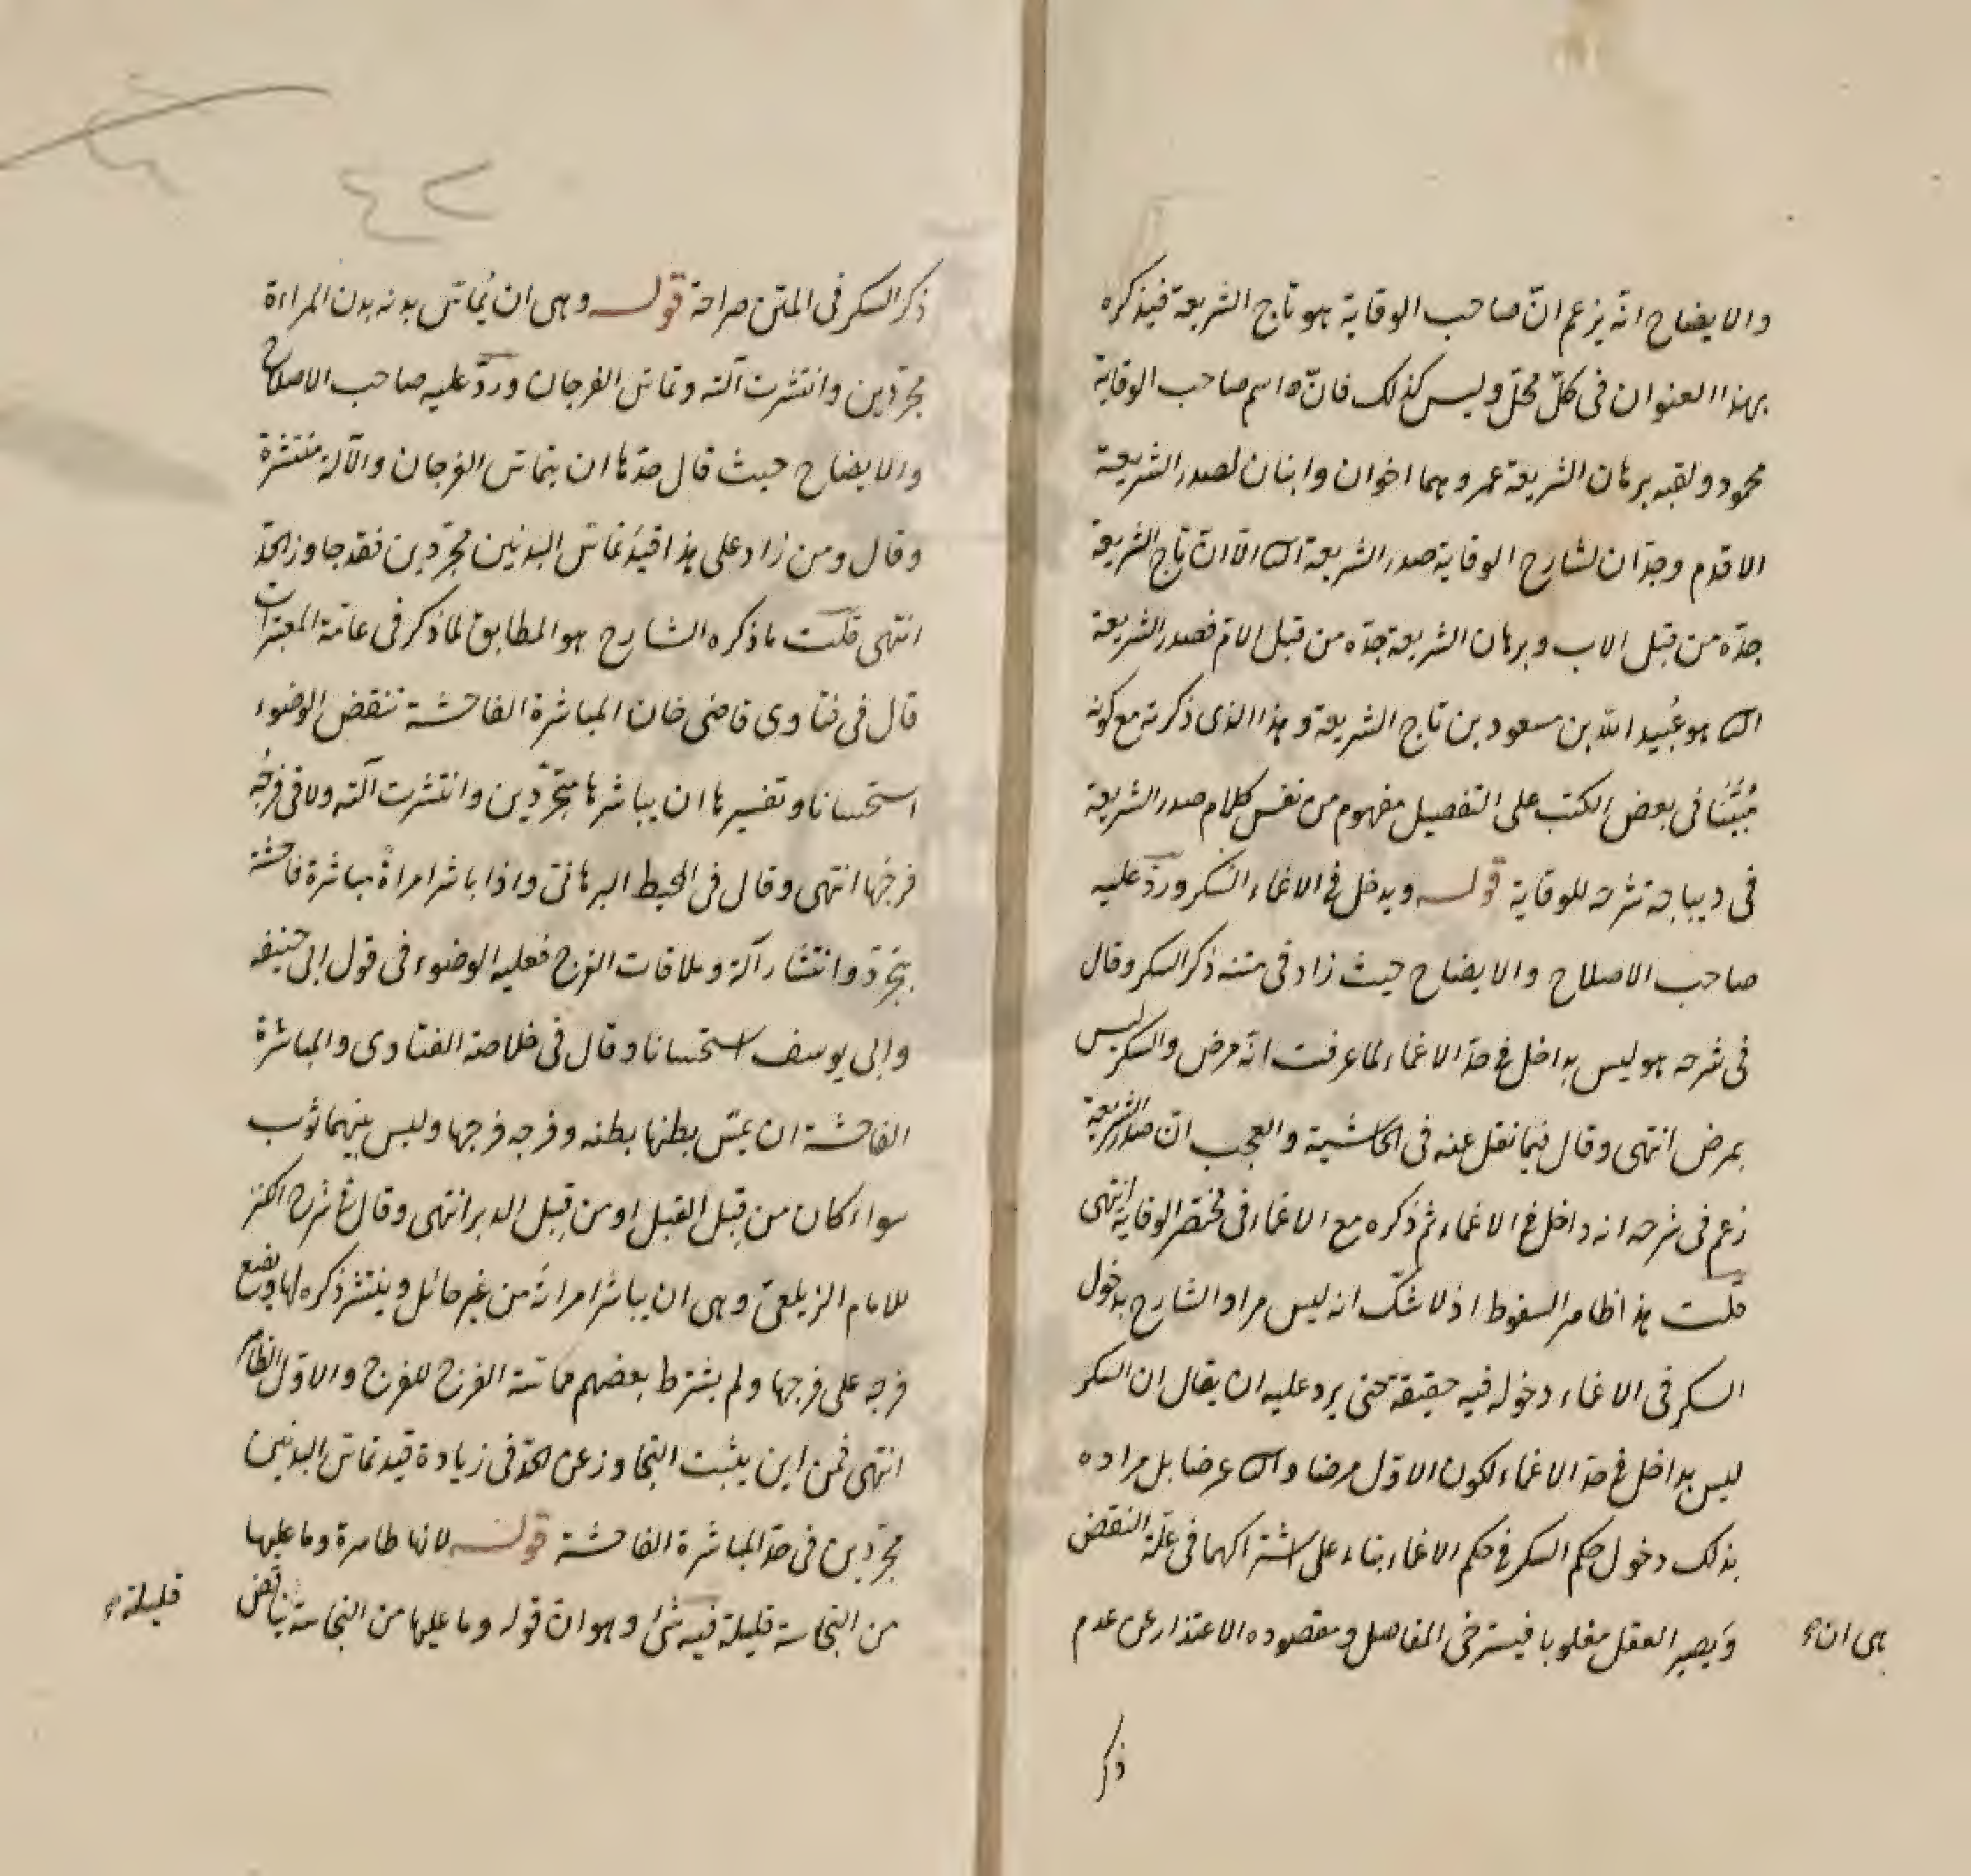 والايضاح انّه يزعم انّ صاحب الوقاية هو تاج الشريعة فيذكره
بهذا العنوان فى كلّ محلّ وليس كذلك فانّ اسم صاحب الوقاية
محمود ولقبه برهان الشريعة عمر وهما اخوان وابنان لصدر الشريعة
الاقدم وجدّان لشارح الوقاية صدر الشريعة الا انّ تاج الشريعة
جدّه من قبل الاب وبرهان الشريعة جدّه من قبل الامّ فصدر الشريعة
هو عُبيد الله بن مسعود بن تاج الشريعة وهذا الذى ذكرته مع كونه
مُبَيَّنًا فى بعض الكتب على التفصيل مفهوم من نفس كلام صدر الشريعة
فى ديباجة شرحه للوقاية قوله ويدخل فى الاغماء السكر وردّ عليه
صاحب الاصلاح والايضاح حيث زاد فى متنه ذكر السكر وقال
فى شرحه هو ليس بداخل فى حدّ الاغماء لما عرفت انّه مرض والسكر ليس
بمرض انتهى وقال فيما نقل عنه فى الحاشية والعجب انّ صدر الشريعة
زعم فى شرحه انه داخل فى الاغماء ثم ذكره مع الاغماء فى مختصر الوقاية انتهى
قلت هذا ظاهر السقوط اذ لا شكّ انه ليس مراد الشارح بدخول
السكر فى الاغماء دخوله فيه حقيقة حتى يرد عليه ان يقال ان السكر
ليس بداخل فى حدّ الاغماء لكون الاوّل مرضا عرضا بل مراده
بذلك دخول حكم السكر فى حكم الاغماء بناء على اشتراكهما فى علّة النقض
هى ان
ويصير العقل مغلوبا فيسترخى المفاصل ومقصوده الاعتذار عن عدم
ذكر
٤٢
ذكر السكر فى المتن صراحة قوله وهى ان يُماسّ بدنه بدن المراءة
مجرّدين وانتشرت آلته وتماسّ الفرجان وردّ عليه صاحب الاصلاح
والايضاح حيث قال حدّها ان يتماسّ الفرجان والآلة منتشرة
وقال ومن زاد على هذا قيدَ تماسّ البدنين مجرّدين فقد جاوز الحدّ
انتهى قلت ما ذكره الشارح هو المطابق لما ذكر فى عامّة المعتبرات
قال فى فتاوى قاضى خان المباشرة الفاحشة تنقض الوضوء
استحسانا وتفسيرها ان يباشرها متجرّدين وانتشرت آلته ولاقى فرجُه
فرجَها انتهى وقال فى المحيط البرهانى واذا باشر امراةً مباشرة فاحشة
بتجرّد وانتشار آلة وملاقات الفرج فعليه الوضوء فى قول ابى حنيفه
وابى يوسف استحسانا وقال فى خلاصة الفتاوى والمباشرة
الفاحشة ان يمسّ بطنها بطنه وفرجه فرجها وليس بينهما ثوب
سواء كان من قِبل القبل او من قِبل الدبر انتهى وقال فى شرح الكنز
للامام الزيلعىّ وهى ان يباشر امراته من غير حائل وينتشر ذكره لها ويضع
فرجه على فرجها ولم يشترط بعضهم مماسّة الفرج للفرج والاوّل الظاهر
انتهى فمن اين يثبت التجاوز عن الحدّ فى زيادة قيد تماسّ البدنين
مجرّدين فى حدّ المباشرة الفاحشة قوله لانها طاهرة وما عليها
من النجاسة قليلة فيه شئ وهو ان قوله وما عليها من النجاسة يناقض
قليلة